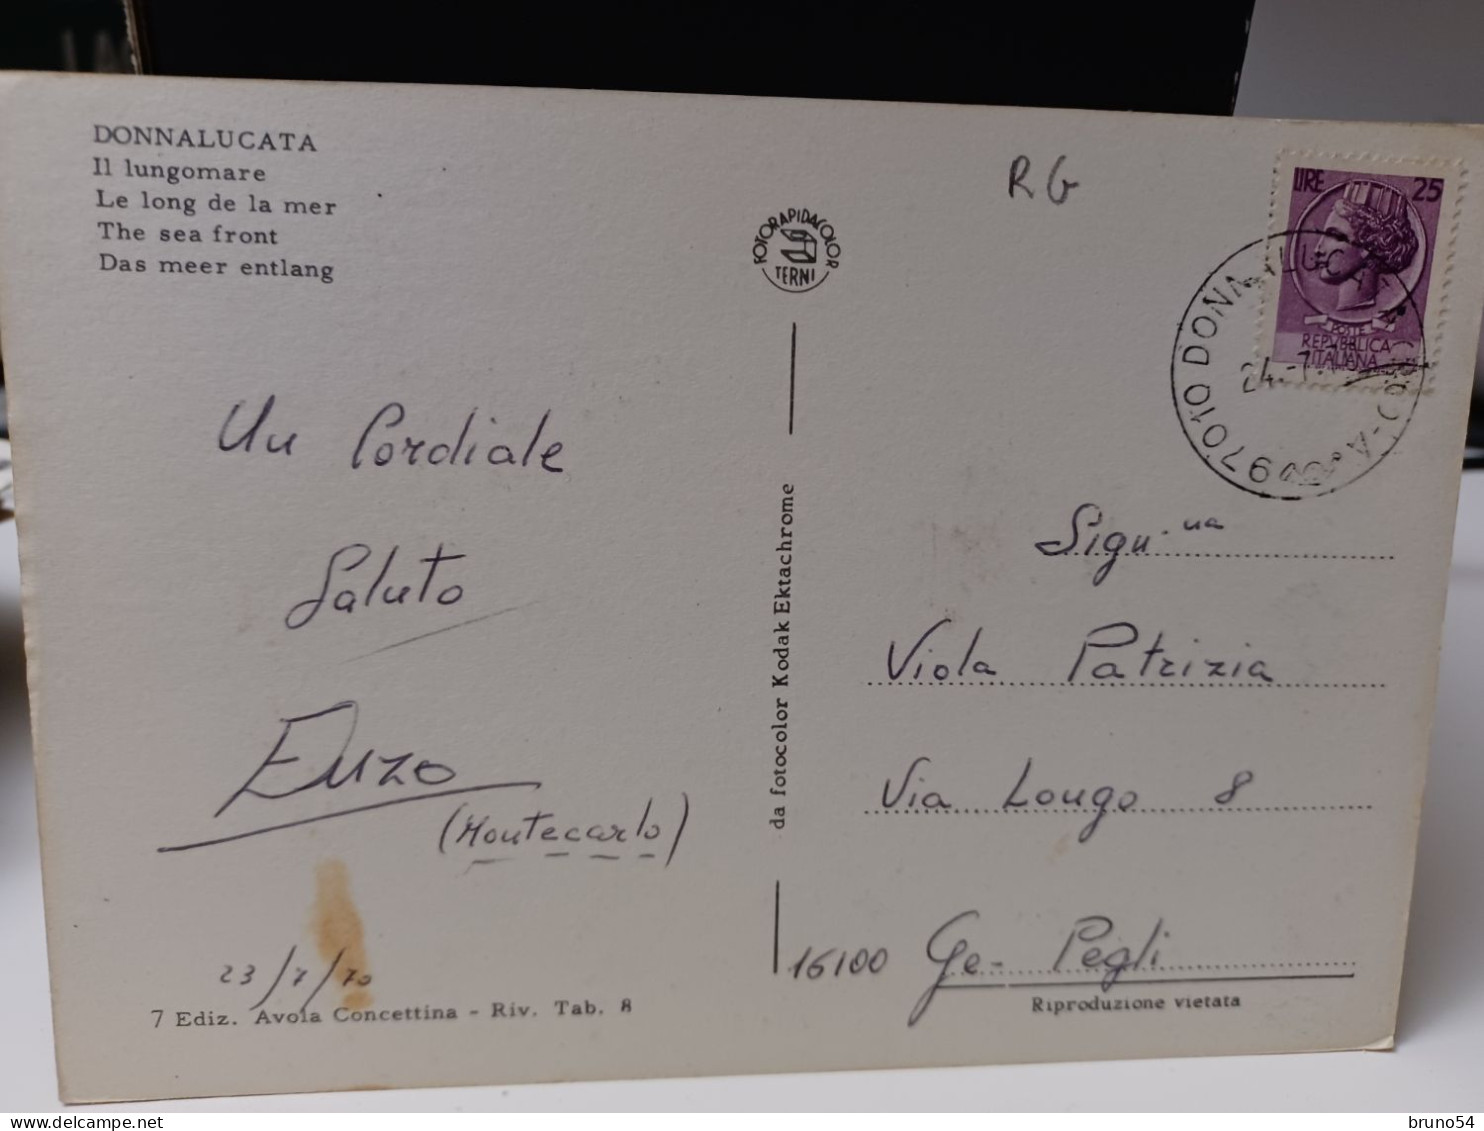 DONNALUCATA
Il lungomare
Le long de la mer
The sea front
Das meer entlang
Un Cordiale
Saluto
Enzo
(Montecarlo)
23/7/70
7 Ediz. Avola Concettina - Riv. Tab. 8
FOTORAPIDACOLOR
TERNI
da fotocolor Kodak Ektachrome
RG
LIRE 25
POSTE
REPVBBLICA
ITALIANA
97010 DONNALUCATA
24.-7.
Sign.na
Viola Patrizia
Via Longo 8
16100 Ge- Pegli
Riproduzione vietata
bruno54